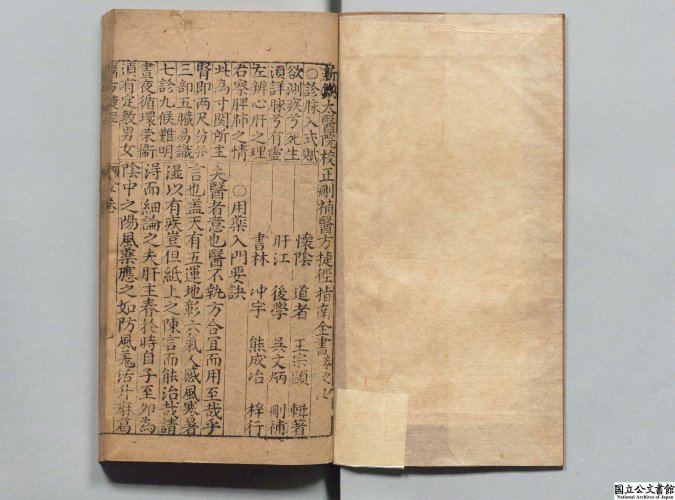 新鐫太醫院校正刪補醫方捷徑指南全書卷之
○診脉入式賦
欲測疾兮死生
須詳脉兮有靈
左辨心肝之理
右察脾肺之情
此為寸関所主
腎即兩尺分并
三部五臟易識
七診九候難明
晝夜循環榮衛
須有定数男女
懷陰 道者 王宗顯 輯著
肝江 後學 吳文炳 刪補
書林 冲宇 熊成冶 梓行
○用藥入門要訣
夫醫者意也醫不執方合宜而用至哉乎
言也盖天有五運地彰六氣人感風寒暑
濕以有疾豈但紙上之陳言而能治哉請
淂而細論之夫肝主春於時自子至卯為
陰中之陽風藥應之如防風羗活升麻葛
醫方捷徑
卷
国立公文書館
National Archives of Japan